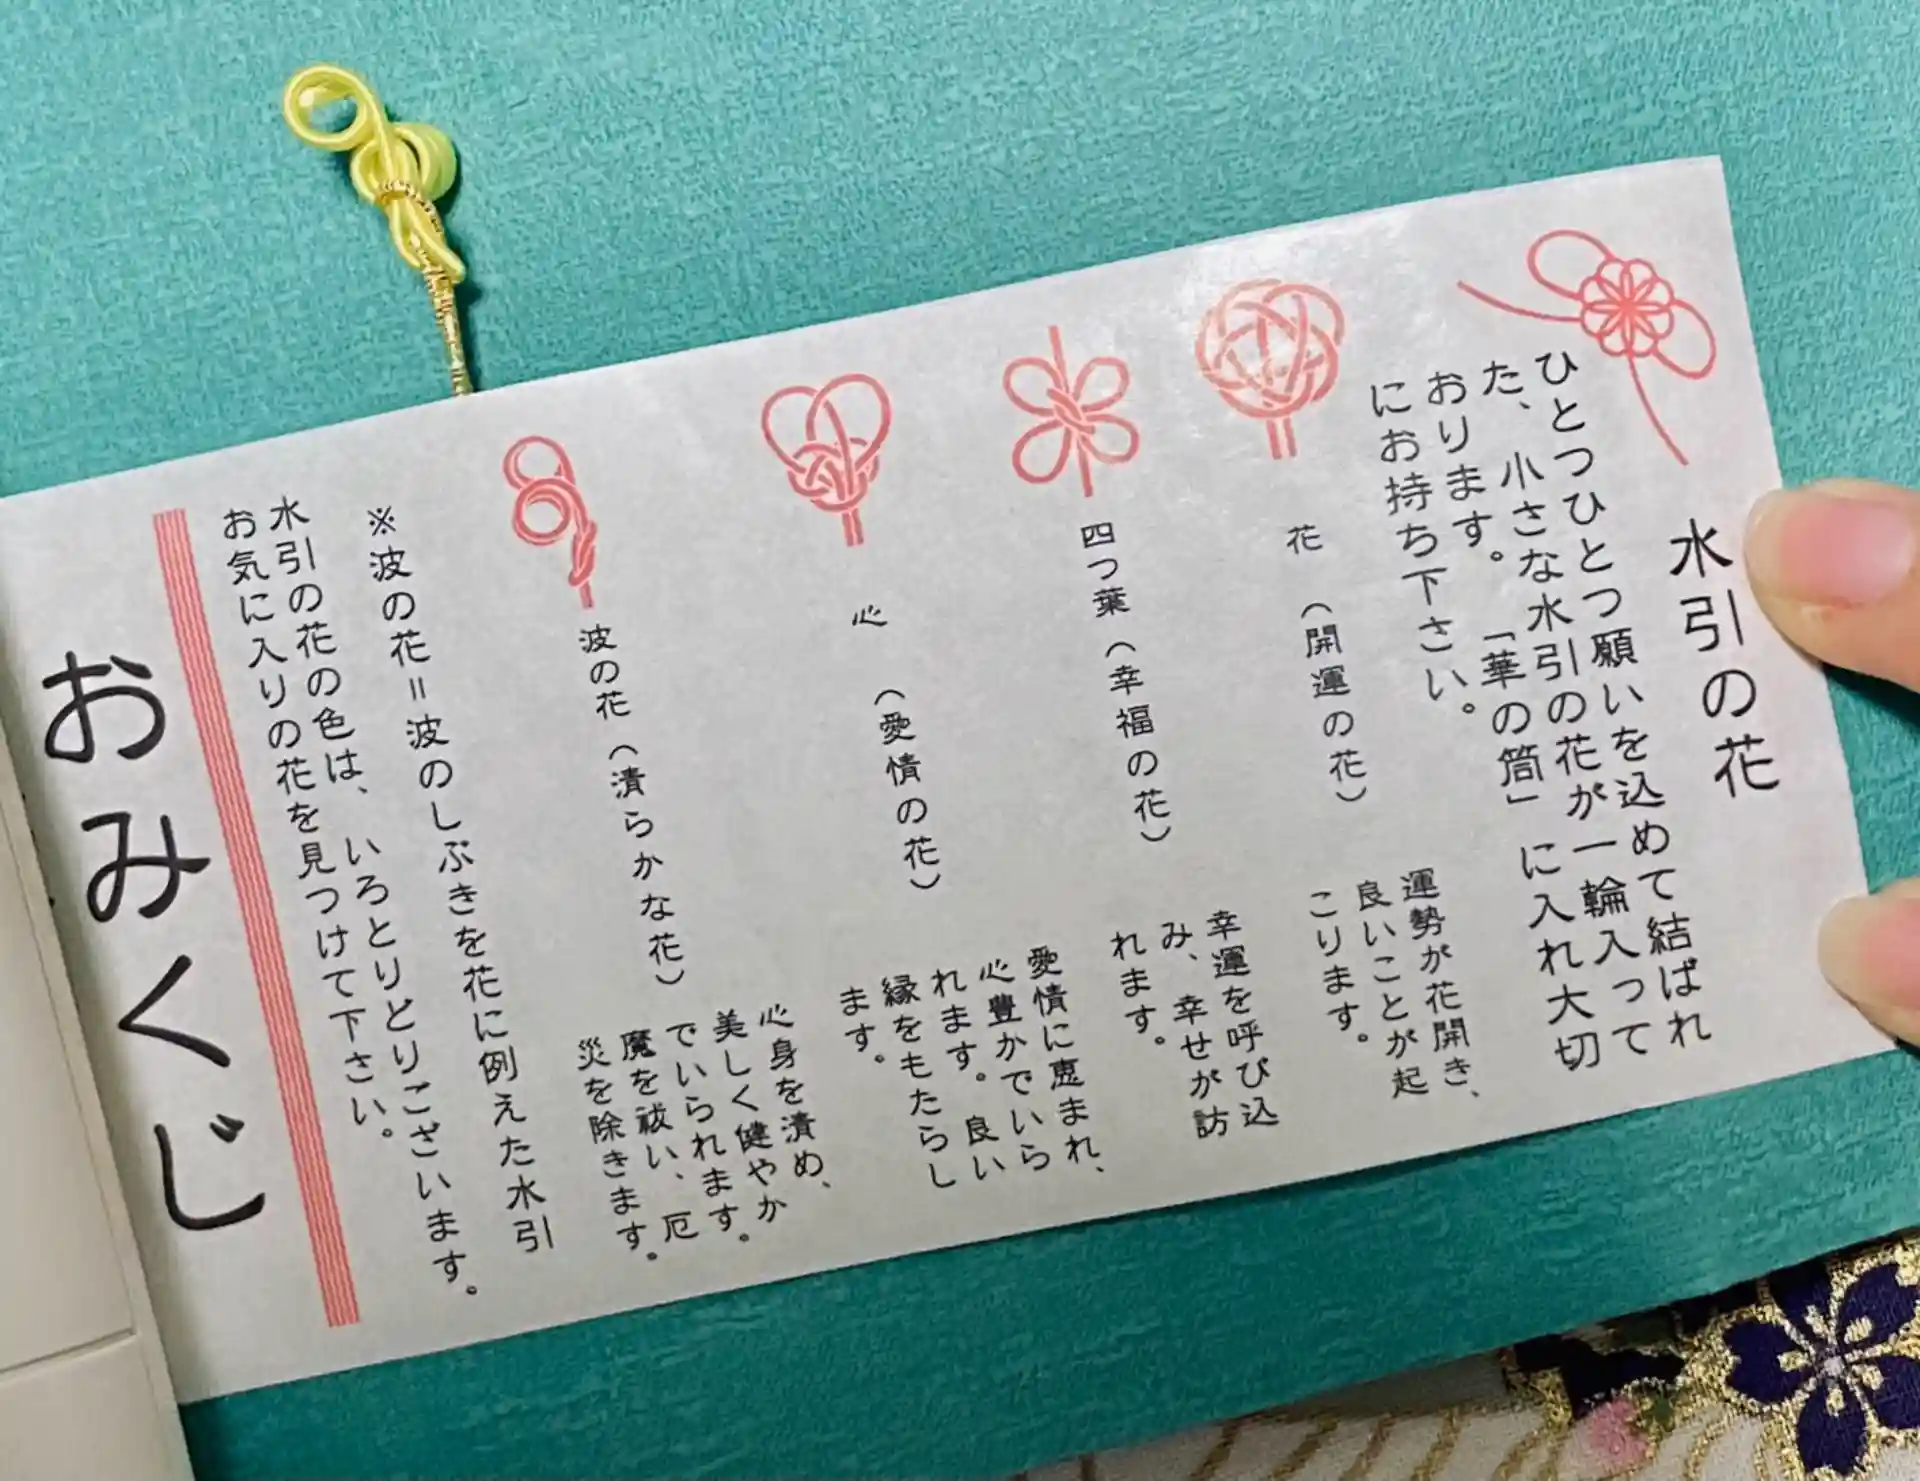 水引の花
ひとつひとつ願いを込めて結ばれ
た、小さな水引の花が一輪入って
おります。「華の筒」に入れ大切
にお持ち下さい。
花（開運の花）
運勢が花開き、
良いことが起
こります。
四つ葉（幸福の花）
幸運を呼び込
み、幸せが訪
れます。
心（愛情の花）
愛情に恵まれ、
心豊かでいら
れます。良い
縁をもたらし
ます。
波の花（清らかな花）
心身を清め、
美しく健やか
でいられます。
魔を祓い、厄
災を除きます。
※波の花＝波のしぶきを花に例えた水引
水引の花の色は、いろとりどりございます。
お気に入りの花を見つけて下さい。
おみくじ